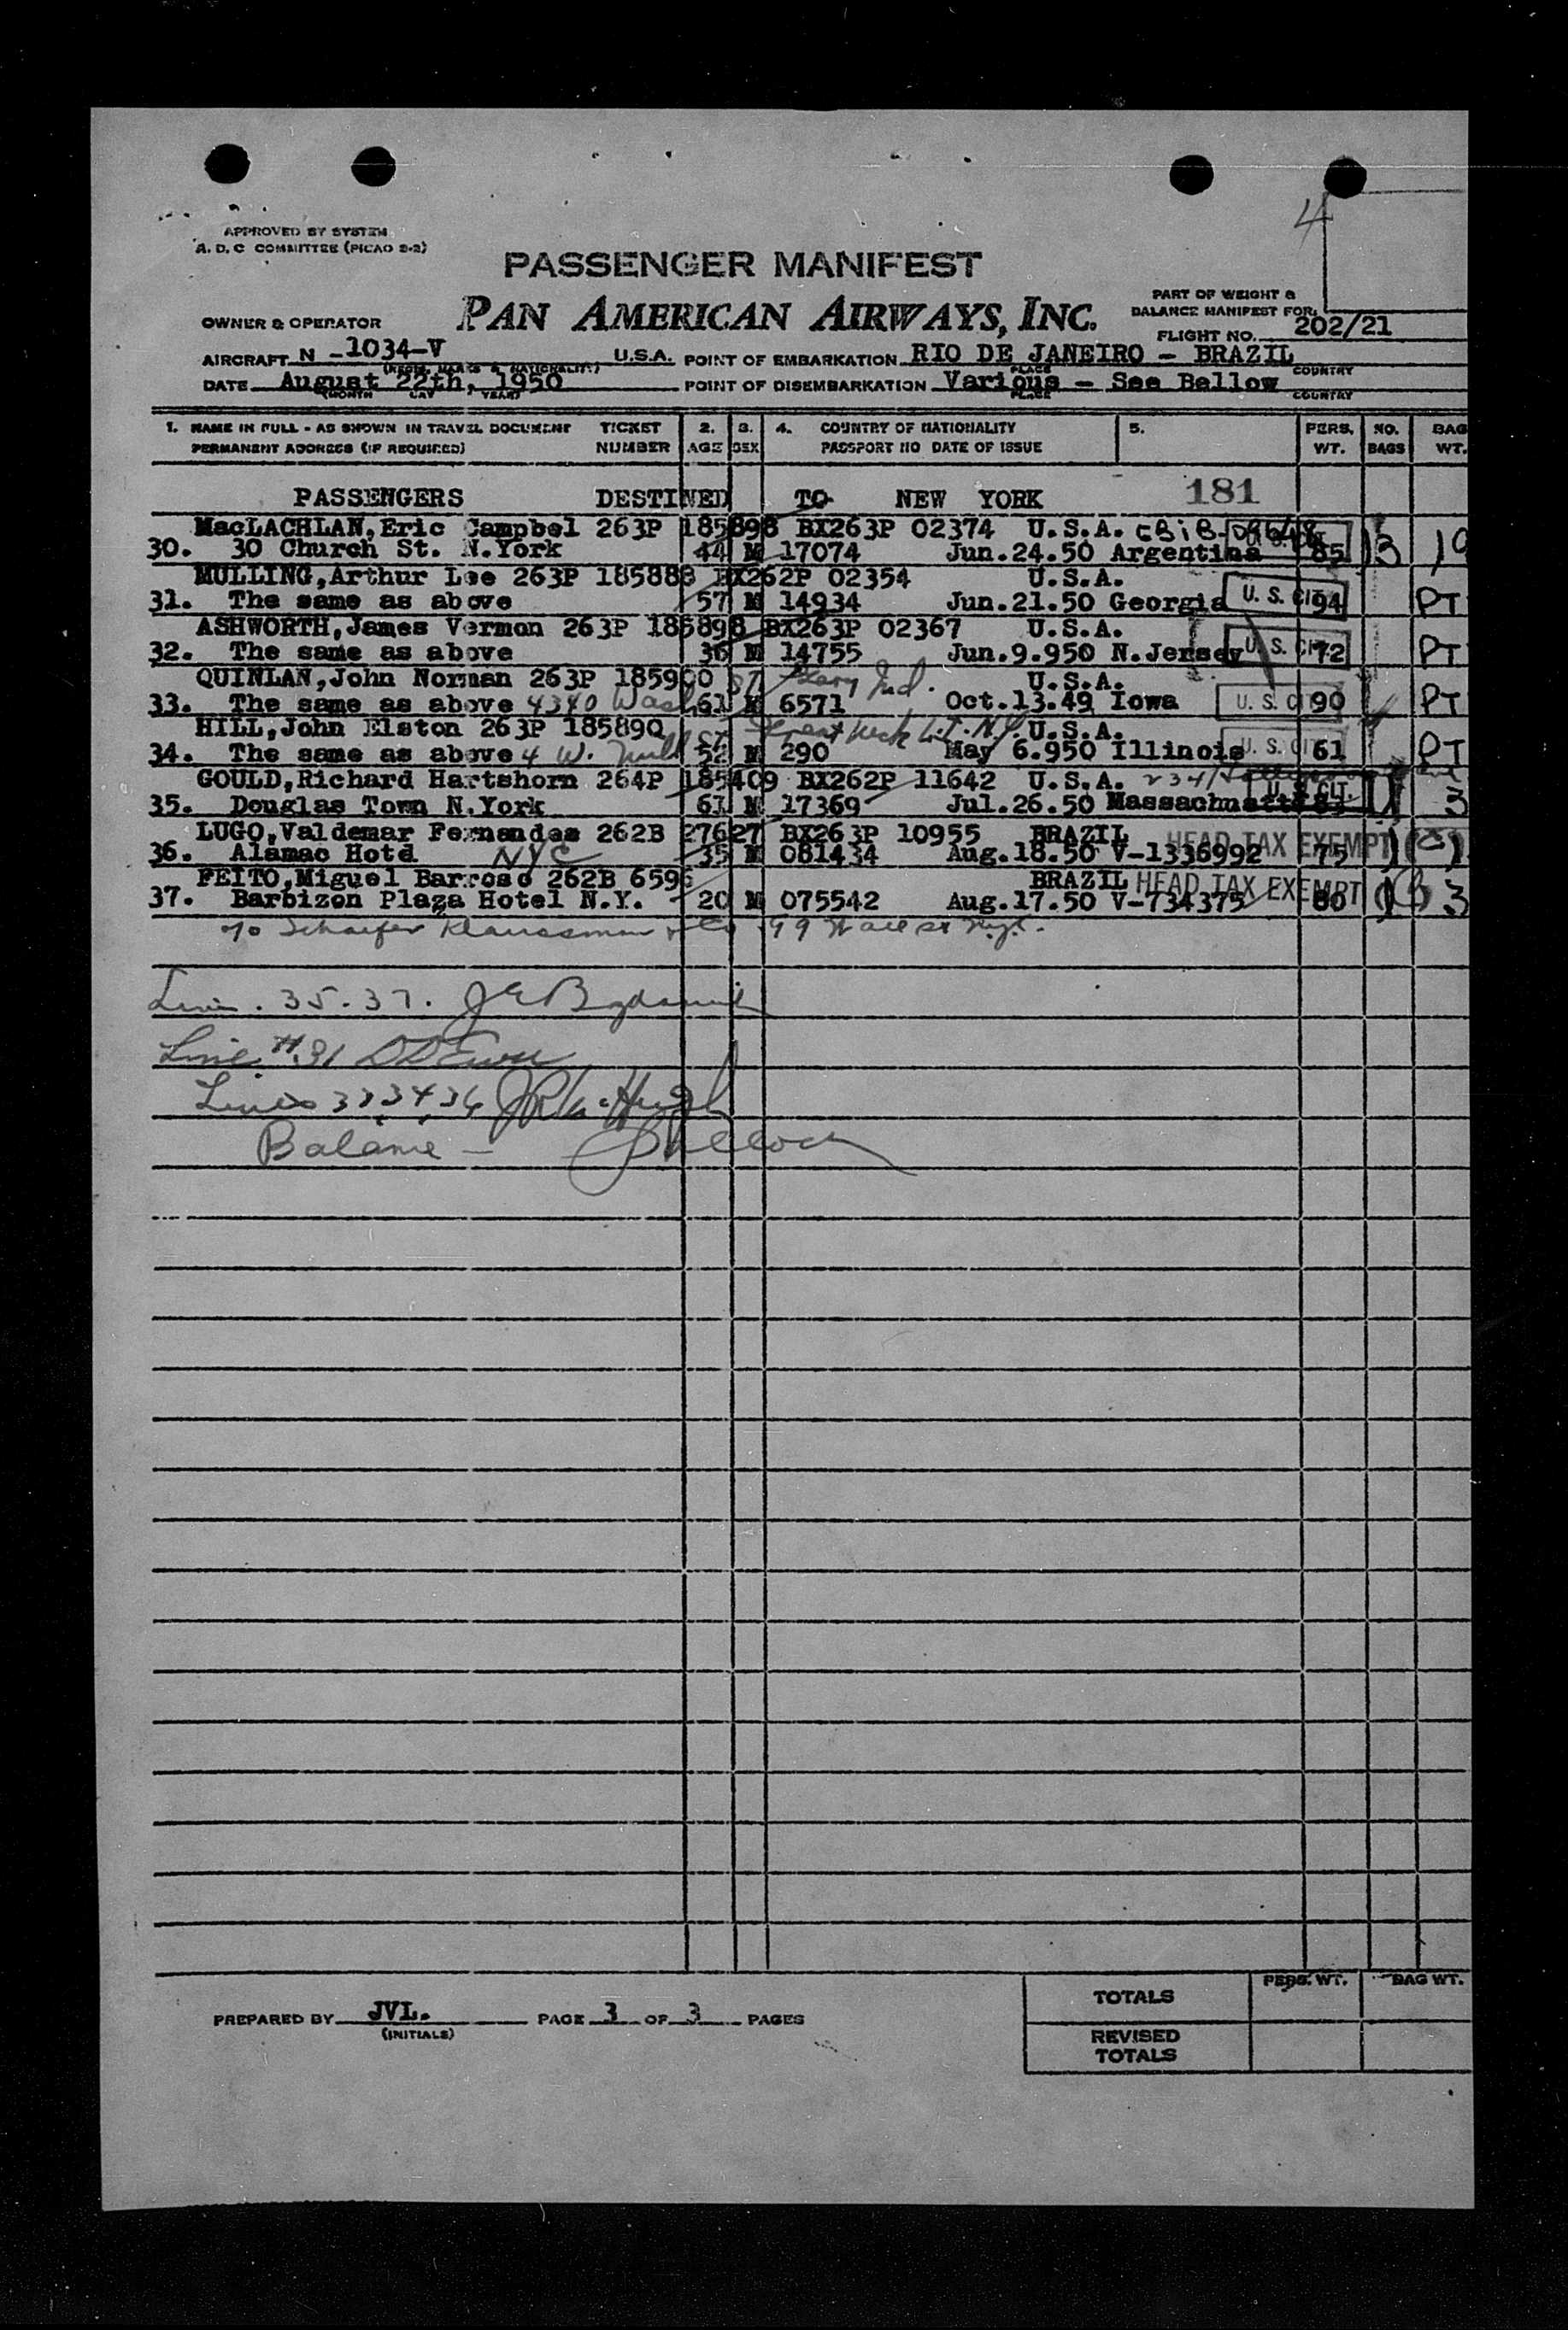 4
APPROVED BY SYSTEM
A. D. C COMMITTEE (PICAO 2-2)
PASSENGER MANIFEST
PAN AMERICAN AIRWAYS, INC.
PART OF WEIGHT &
BALANCE MANIFEST FOR:
OWNER & OPERATOR
FLIGHT NO. 202/21
AIRCRAFT N -1034-V U.S.A. POINT OF EMBARKATION RIO DE JANEIRO - BRAZIL
(REGIS. MARKS & NATIONALITY) PLACE COUNTRY
DATE August 22th, 1950 POINT OF DISEMBARKATION Various - See Bellow
(MONTH DAY YEAR) PLACE COUNTRY
1. NAME IN FULL - AS SHOWN IN TRAVEL DOCUMENT TICKET 2. 3. 4. COUNTRY OF NATIONALITY 5. PERS. NO. BAG
PERMANENT ADDRESS (IF REQUIRED) NUMBER AGE SEX PASSPORT NO DATE OF ISSUE WT. BAGS WT.
PASSENGERS DESTINED TO NEW YORK 181
MacLACHLAN, Eric Campbel 263P 185898 BX263P 02374 U.S.A.
30. 30 Church St. N.York 44 M 17074 Jun.24.50 Argentina 85 3 19
MULLING, Arthur Lee 263P 185888 BX262P 02354 U.S.A.
31. The same as above 57 M 14934 Jun.21.50 Georgia U. S. CIT. 94 PT
ASHWORTH, James Vermon 263P 185898 BX263P 02367 U.S.A.
32. The same as above 36 M 14755 Jun.9.950 N.Jersey U. S. CIT. 72 PT
QUINLAN, John Norman 263P 185900 ST Gary Ind. U.S.A.
33. The same as above 4340 Wash 61 M 6571 Oct.13.49 Iowa U. S. CIT. 90 PT
HILL, John Elston 263P 185890 ST Great Neck L.I. N.Y. U.S.A.
34. The same as above 4 W. Mill 52 M 290 May 6.950 Illinois U. S. CIT. 61 PT
GOULD, Richard Hartshorn 264P 185409 BX262P 11642 U.S.A. 2341
35. Douglas Town N.York 61 M 17369 Jul.26.50 Massachusetts U. S. CIT. 1 3
LUGO, Valdemar Fernandes 262B 27627 BX263P 10955 BRAZIL HEAD TAX EXEMPT
36. Alamac Hotel NYC 35 M 081434 Aug.18.50 V-1336992 75
FEITO, Miguel Barroso 262B 6596 BRAZIL HEAD TAX EXEMPT
37. Barbizon Plaza Hotel N.Y. 20 M 075542 Aug.17.50 V-734375 80 3
c/o Schaefer Klaussmann & Co 99 Wall St N.Y.C.
Line . 35-37.
Line #31
Lines 33 34 36
Balance -
PREPARED BY JVL. PAGE 3 OF 3 PAGES
(INITIALS)
TOTALS PERS. WT. BAG WT.
REVISED
TOTALS